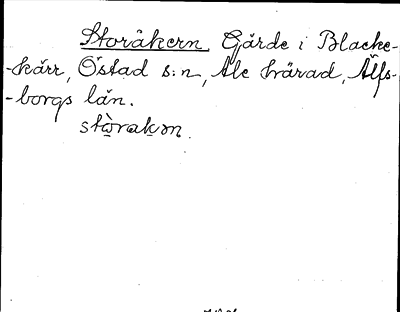 Storåkern, Gärde i Blacke-
-kärr, Östad s:n, Ale härad, Älfs-
-borgs län.